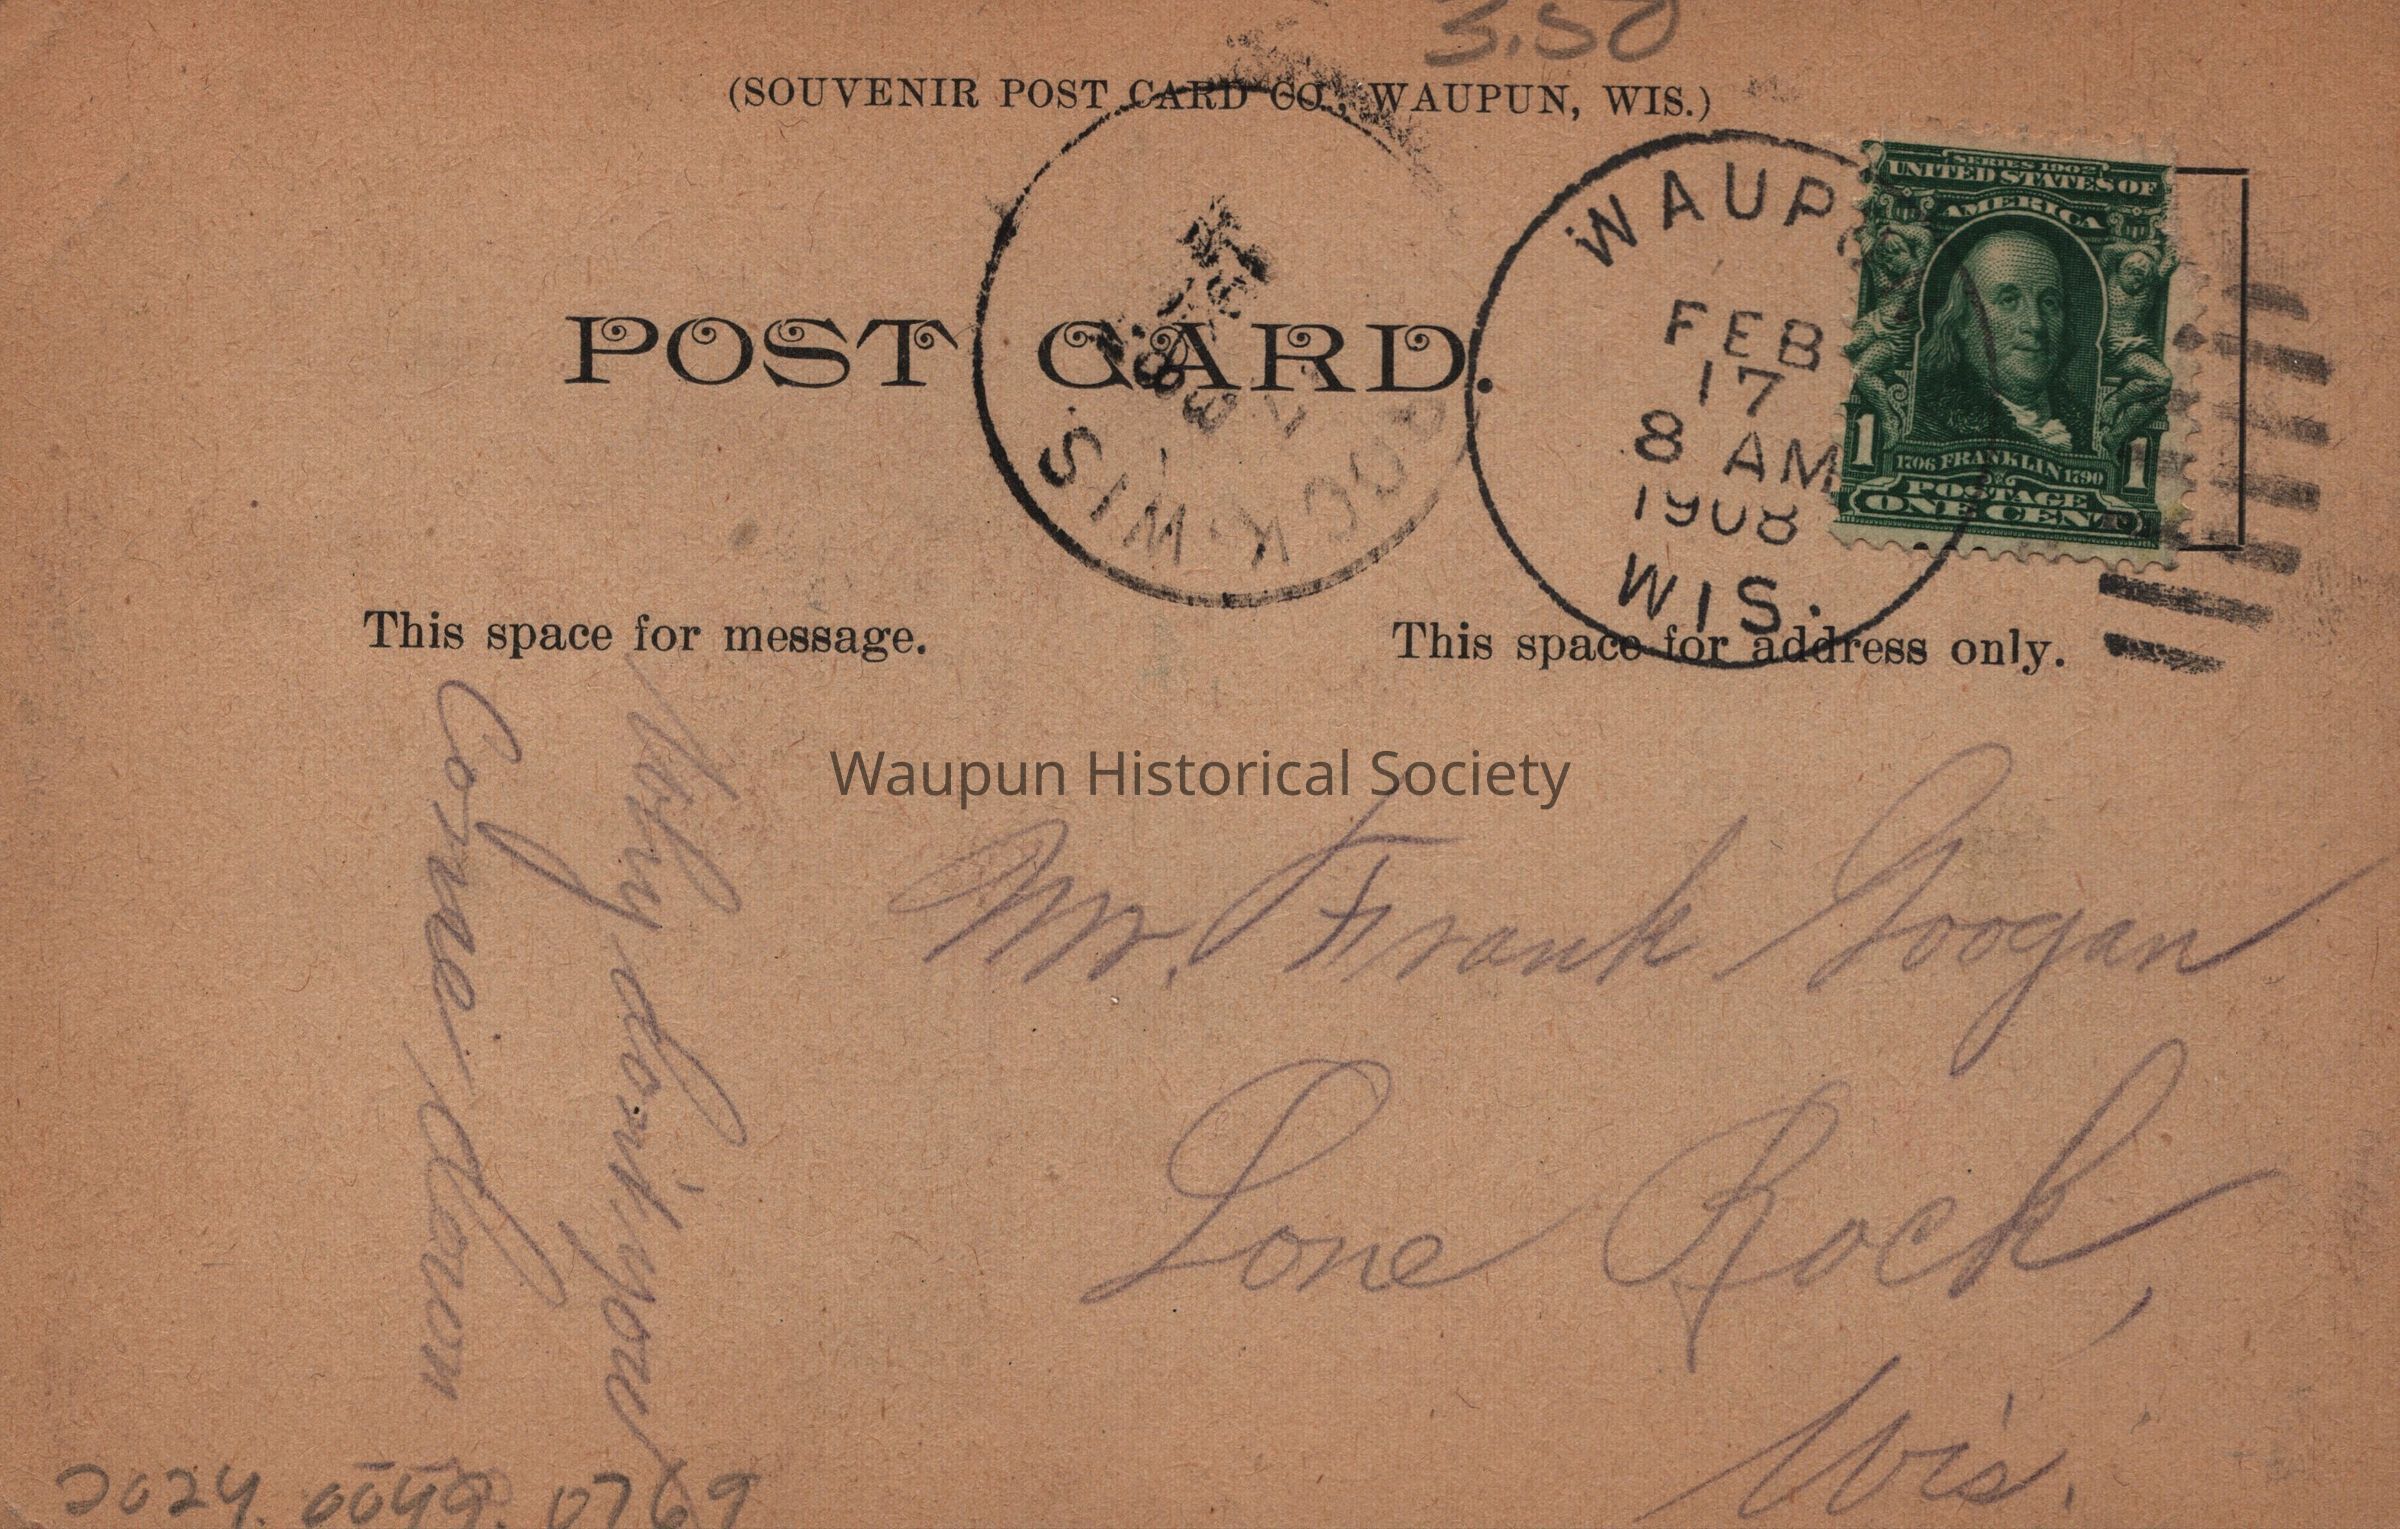 3.50
(SOUVENIR POST CARD CO., WAUPUN, WIS.)
POST CARD.
ROCK. WIS.
WAUP
FEB
17
8 AM
1908
WIS.
SERIES 1902
UNITED STATES OF
AMERICA
1 1
1706 FRANKLIN 1790
POSTAGE
ONE CENT
This space for message.
This space for address only.
Why don't you
Come down
Waupun Historical Society
Mr. Frank Googan
Lone Rock,
Wis.
2024.0049.0769